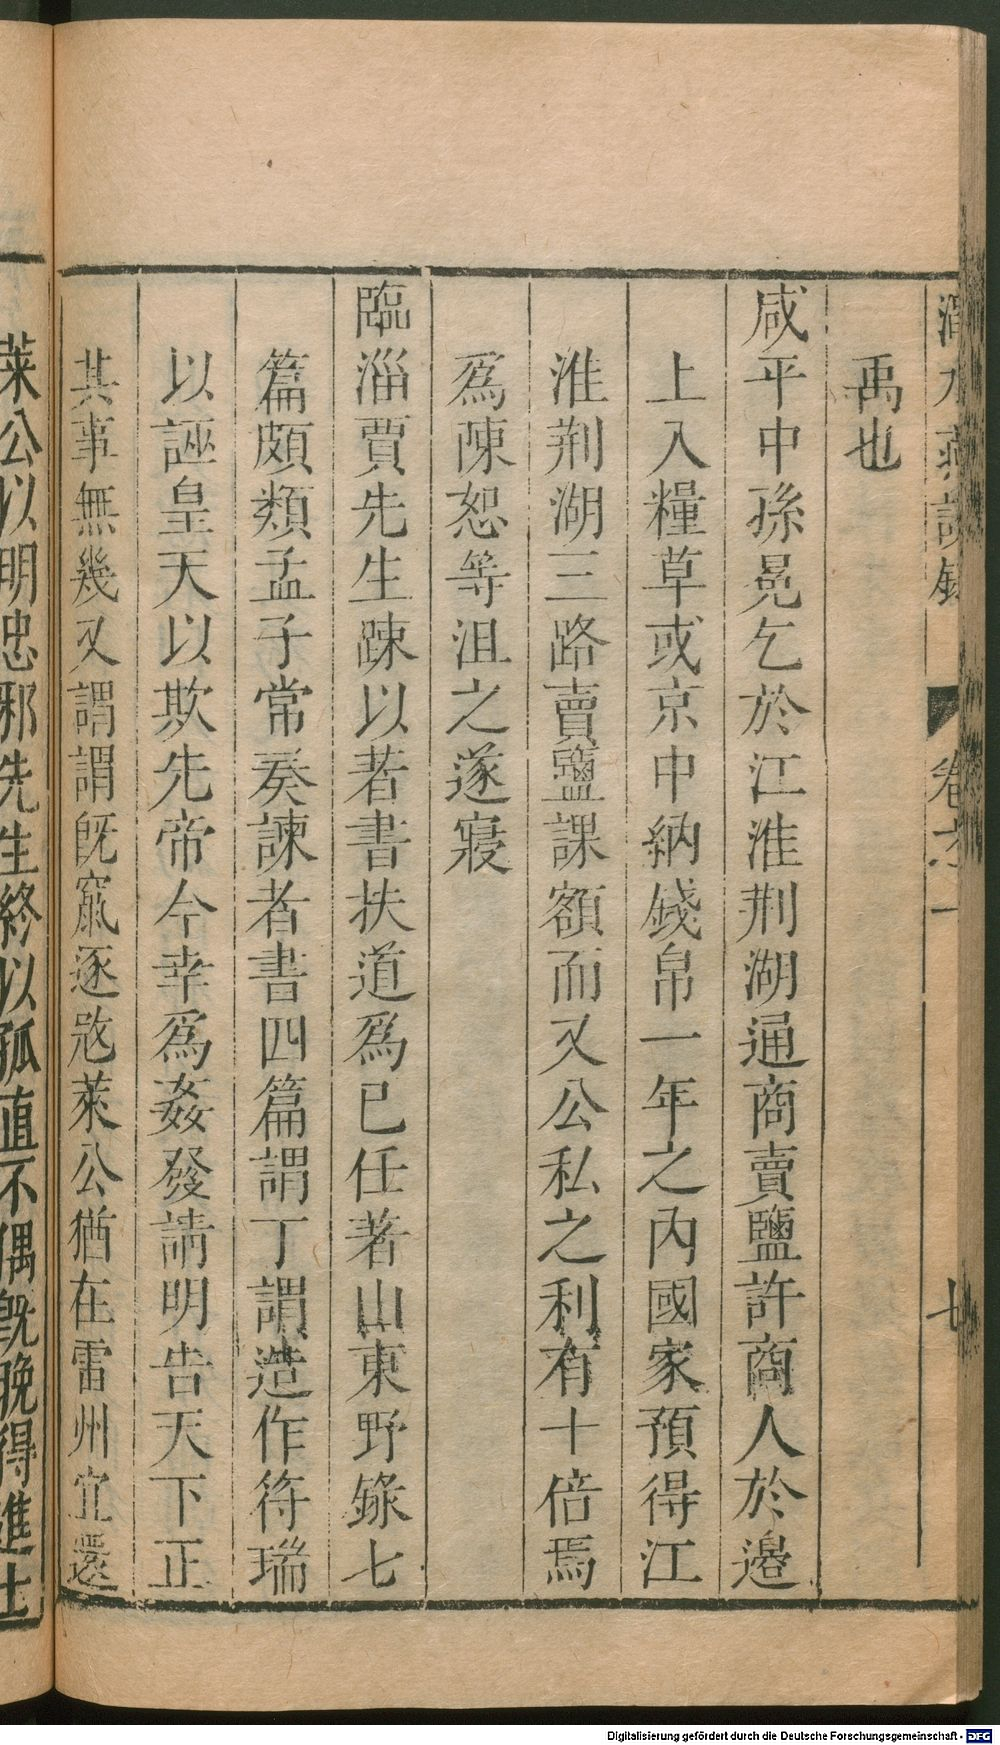 澠水燕談錄 卷之一 七
禹也
咸平中孫晃乞於江淮荆湖通商賣鹽許商人於邉
上入糧草或京中納錢帛一年之內國家預得江
淮荆湖三路賣鹽課額而又公私之利有十倍焉
爲陳恕等沮之遂寢
臨淄賈先生踈以著書扶道爲已任著山東野錄七
篇頗類孟子常奏諫者書四篇謂丁謂造作符瑞
以誣皇天以欺先帝今幸爲姦發請明告天下正
其事無幾又謂謂旣竄逐㓂萊公猶在雷州宜還
萊公以明忠邪先生終以孤直不偶旣晚得進士
Digitalisierung gefördert durch die Deutsche Forschungsgemeinschaft - DFG